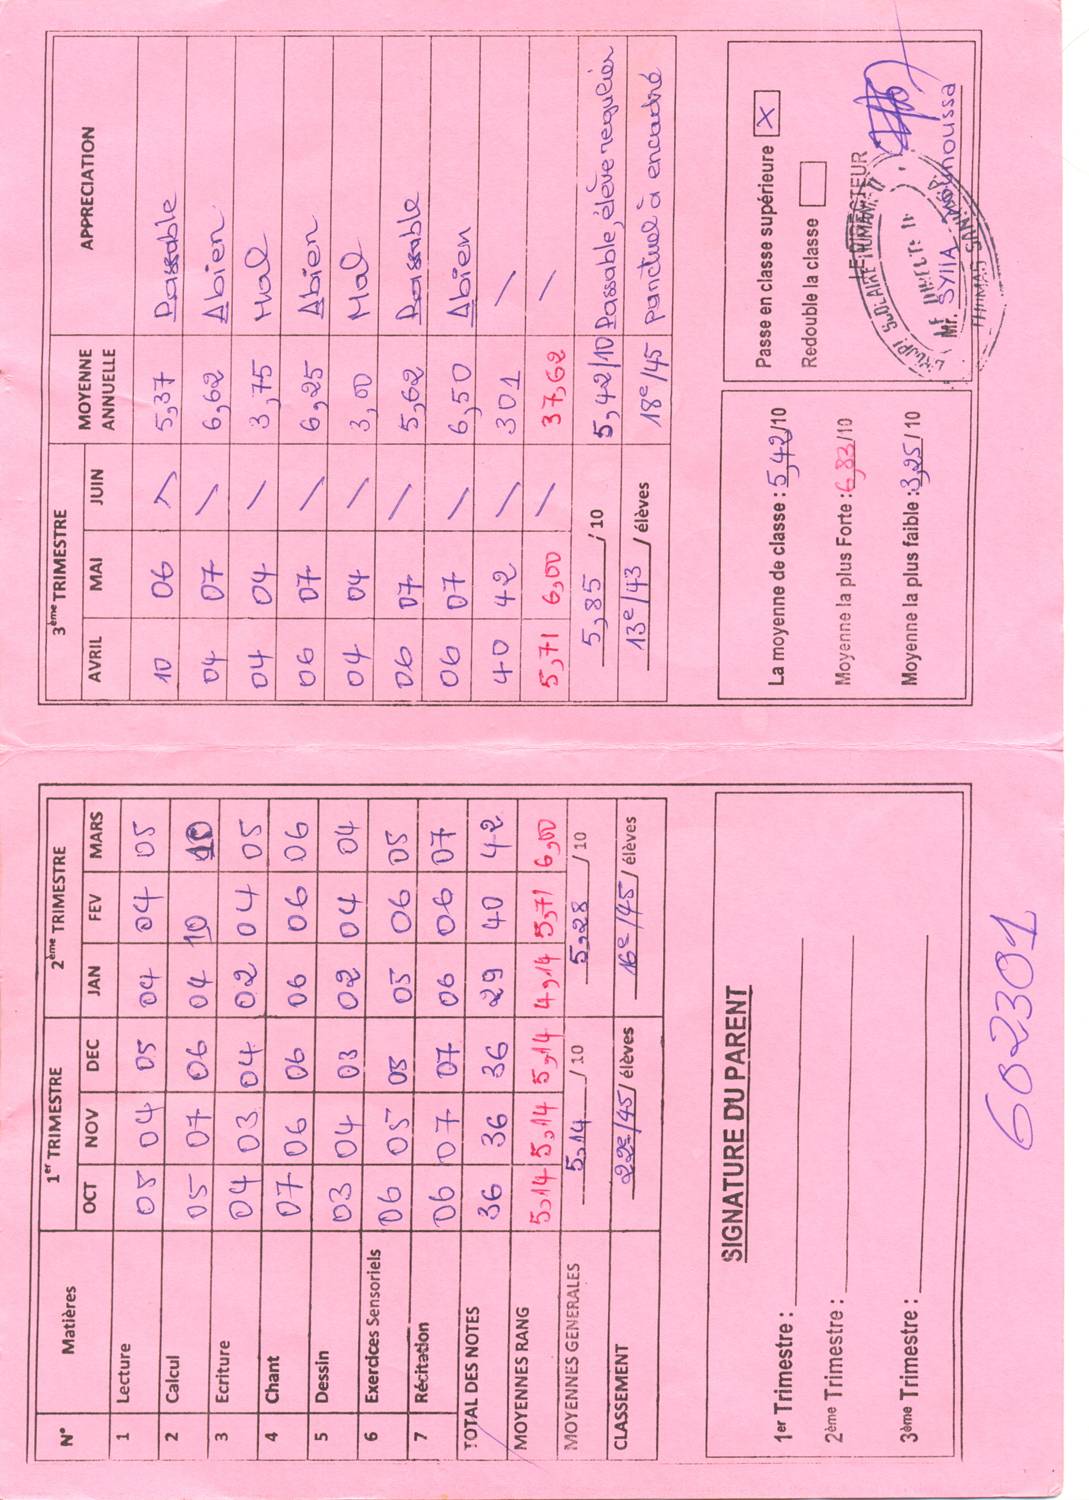 N° Matières 1er TRIMESTRE 2ème TRIMESTRE
OCT NOV DEC JAN FEV MARS
1 Lecture 05 04 05 04 04 05
2 Calcul 05 07 06 04 10 10
3 Ecriture 04 03 04 02 04 05
4 Chant 07 06 06 06 06 06
5 Dessin 03 04 03 02 04 04
6 Exercices Sensoriels 06 05 05 05 06 05
7 Récitation 06 07 07 06 06 07
TOTAL DES NOTES 36 36 36 29 40 42
MOYENNES RANG 5,14 5,14 5,14 4,14 5,71 6,00
MOYENNES GENERALES 5,14 / 10 5,28 / 10
CLASSEMENT 22e/45/ élèves 16e/45/ élèves
SIGNATURE DU PARENT
1er Trimestre :
2ème Trimestre :
3ème Trimestre :
602301
3ème TRIMESTRE MOYENNE ANNUELLE APPRECIATION
AVRIL MAI JUIN
10 06 / 5,37 Passable
04 07 / 6,62 Abien
04 04 / 3,75 Mal
06 07 / 6,25 Abien
04 04 / 3,00 Mal
06 07 / 5,62 Passable
06 07 / 6,50 Abien
40 42 / 301 /
5,71 6,00 / 37,62 /
5,85 / 10 5,42/10 Passable, élève regulier
13e/43 / élèves 18e/45 ponctuel à encadré
La moyenne de classe : 5,42/10
Moyenne la plus Forte : 6,83/10
Moyenne la plus faible : 3,25/10
Passe en classe supérieure X
Redouble la classe
LE DIRECTEUR
Mr. SYLLA Mounoussa